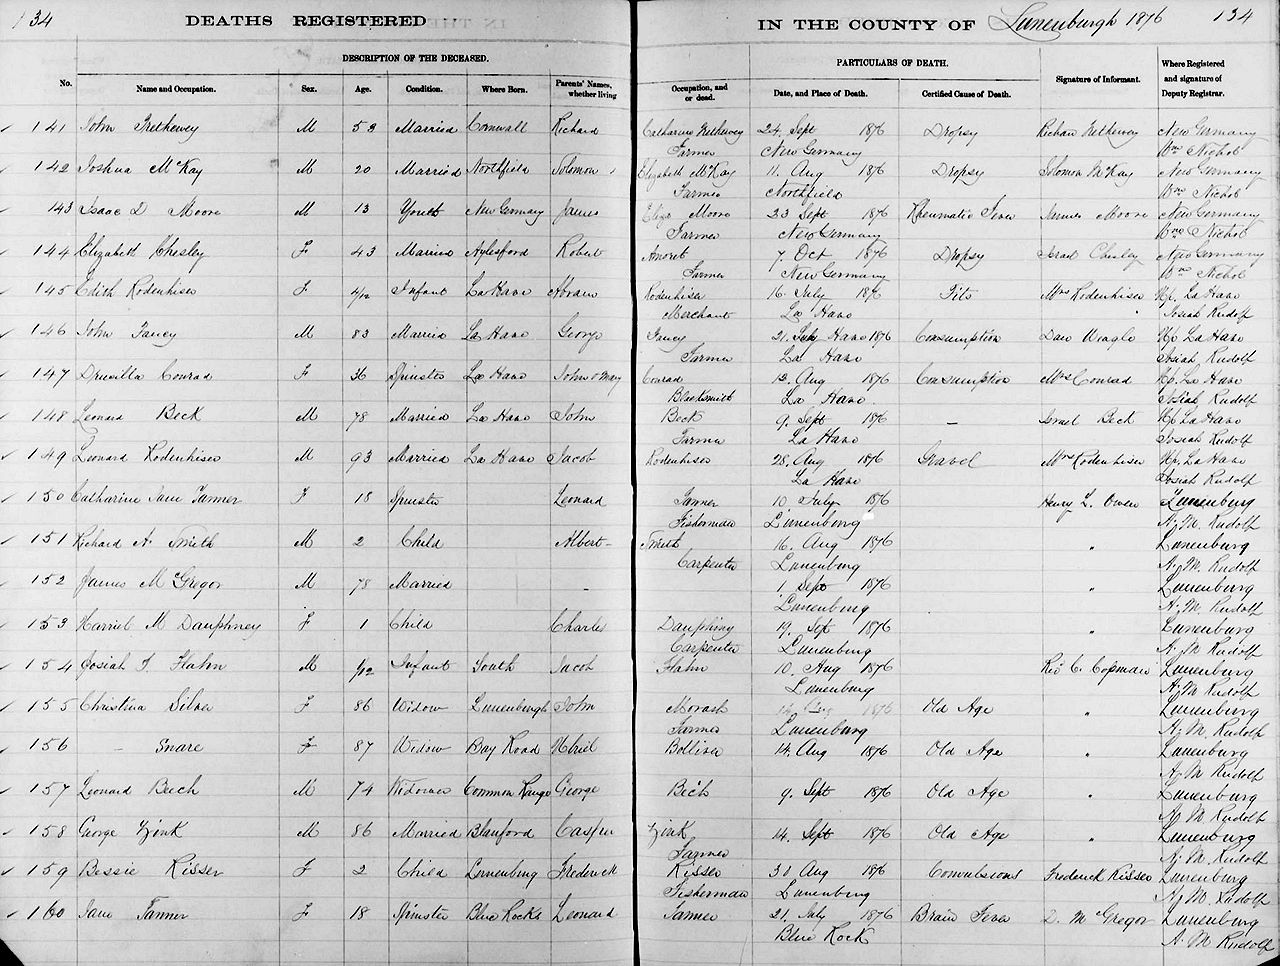 134 DEATHS REGISTERED IN THE COUNTY OF Lunenburgh 1876 134
DESCRIPTION OF THE DECEASED. PARTICULARS OF DEATH.
No. Name and Occupation. Sex. Age. Condition. Where Born. Parents' Names, whether living Occupation, and or dead. Date, and Place of Death. Certified Cause of Death. Signature of Informant. Where Registered and signature of Deputy Registrar.
141 John Trethewey M 53 Married Cornwall Richard Catharine Trethewey 24. Sept 1876 Dropsy Richan Trethewey New Germany
Farmer New Germany Wm Nichol
142 Joshua McKay M 20 Married Northfield Solomon Elizabeth McKay 11. Aug 1876 Dropsy Solomon McKay New Germany
Farmer Northfield Wm Nichol
143 Isaac D Moore M 13 Youth New Germany James Eliza Moore 23 Sept 1876 Rheumatic Fever James Moore New Germany
Farmer New Germany Wm Nichol
144 Elizabeth Chesley F 43 Married Aylesford Robert Amoret 7. Oct 1876 Dropsy Israel Chesley New Germany
Farmer New Germany Wm Nichol
145 Edith Rodenhiser F 4/12 Infant La Have Abram Rodenhiser 16. July 1876 Fits Mrs Rodenhiser Up. La Have
Merchant La Have Josiah Rudolf
146 John Fancy M 83 Married La Have George Fancy 21. July Have 1876 Consumption Dan Weagle Up La Have
Farmer La Have Josiah Rudolf
147 Drusilla Conrad F 36 Spinster La Have John & Mary Conrad 13. Aug 1876 Consumption Mrs Conrad Up. La Have
Blacksmith La Have. Josiah Rudolf
148 Leonard Beck M 78 Married La Have John Beck 9. Sept 1876 – Israel Beck Up La Have
Farmer La Have Josiah Rudolf
149 Leonard Rodenhiser M 93 Married La Have Jacob Rodenhiser 28. Aug 1876 Gravel Mrs Rodenhiser Up. La Have
La Have Josiah Rudolf
150 Catharine Jane Tanner F 18 Spinster Leonard Tanner 10 July 1876 Henry L. Owen Lunenburg
Fisherman Lunenburg A. M. Rudolf
151 Richard A. Smith M 2 Child Albert Smith 16. Aug 1876 " Lunenburg
Carpenter Lunenburg A. M. Rudolf
152 James McGregor M 78 Married – 1. Sept 1876 " Lunenburg
Lunenburg A. M. Rudolf
153 Harriet M Dauphney F 1 Child Charles Dauphiny 19. Sept 1876 " Lunenburg
Carpenter Lunenburg A. M. Rudolf
154 Josiah F. Hahn M 1/12 Infant South Jacob Hahn 10. Aug 1876 Rev C. Cossman Lunenburg
Lunenburg A. M Rudolf
155 Christina Silver F 86 Widow Lunenburgh John Morash 14. Aug 1876 Old Age " Lunenburg
Farmer Lunenburg A. M Rudolf
156 – Snare F 87 Widow Bay Road Uhriel Bolliver 14. Aug 1876 Old Age " Lunenburg
A. M Rudolf
157 Leonard Beck M 74 Widower Common Range George Beck 9. Sept 1876 Old Age " Lunenburg
A. M. Rudolf
158 George Zink M 86 Married Blanford Casper Zink 14. Sept 1876 Old Age " Lunenburg
Farmer A. M. Rudolf
159 Bessie Risser F 2 Child Lunenburg Frederick Risser 30 Aug 1876 Convulsions Frederick Risser Lunenburg
Fisherman Lunenburg A. M. Rudolf
160 Jane Tanner F 18 Spinster Blue Rocks Leonard Tanner 21. July 1876 Brain Fever D. McGregor Lunenburg
Blue Rock A. M Rudolf